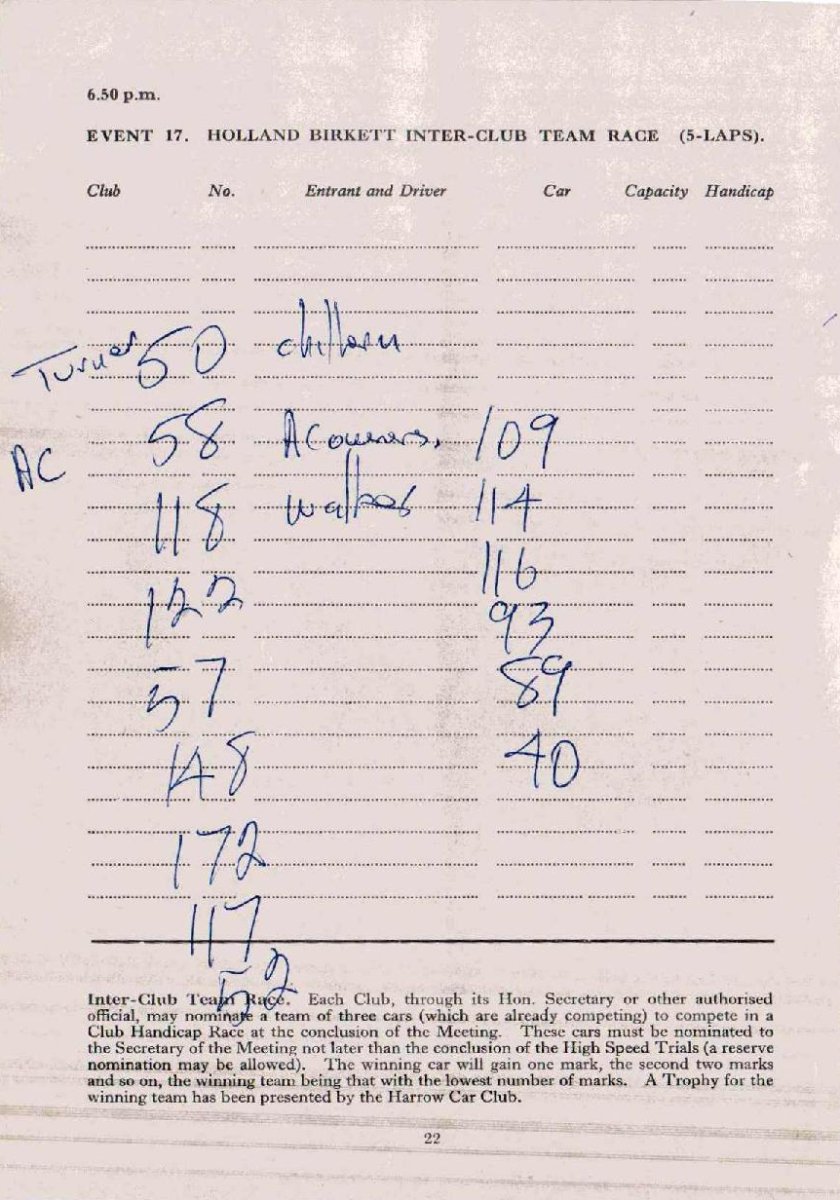 6.50 p.m.
EVENT 17. HOLLAND BIRKETT INTER-CLUB TEAM RACE (5-LAPS).
Club No. Entrant and Driver Car Capacity Handicap
Turner 50
AC 58 AC owners. 109
118 Walker 114
116
122 93
57 89
148 40
172
117
52
Inter-Club Team Race. Each Club, through its Hon. Secretary or other authorised
official, may nominate a team of three cars (which are already competing) to compete in a
Club Handicap Race at the conclusion of the Meeting. These cars must be nominated to
the Secretary of the Meeting not later than the conclusion of the High Speed Trials (a reserve
nomination may be allowed). The winning car will gain one mark, the second two marks
and so on, the winning team being that with the lowest number of marks. A Trophy for the
winning team has been presented by the Harrow Car Club.
22